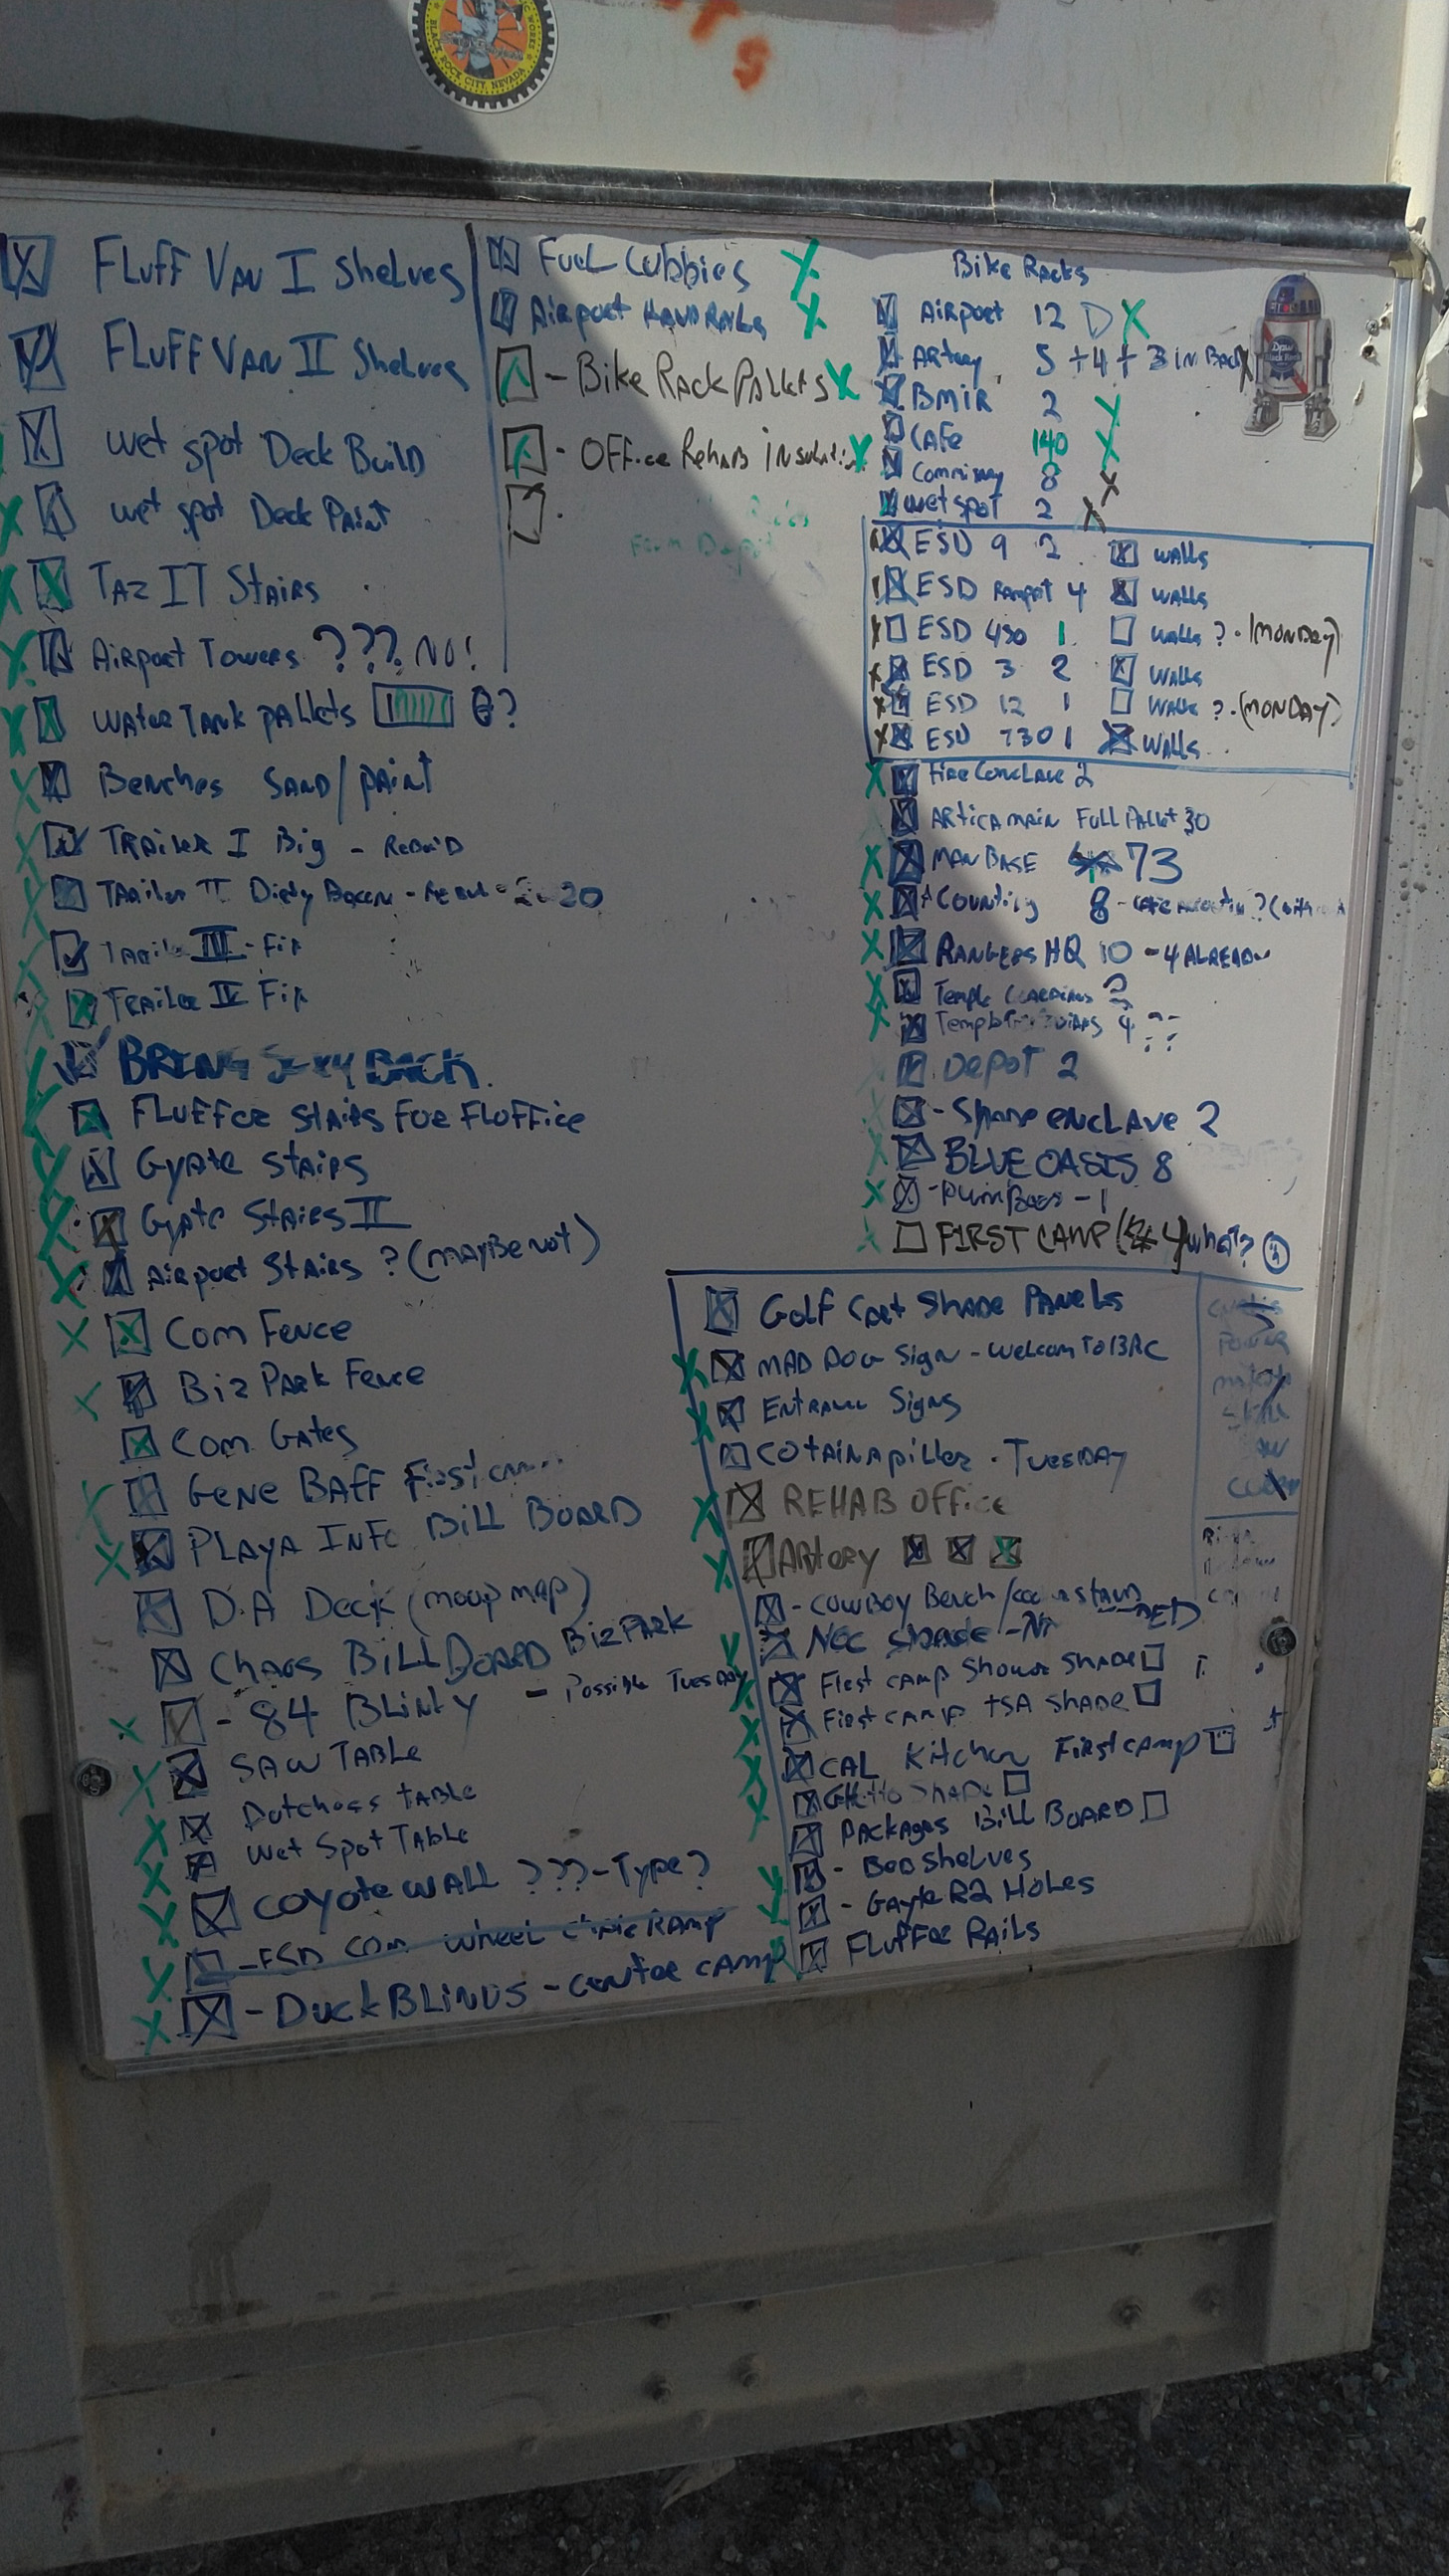 BLACK ROCK CITY, NEVADA
TS
Fluff Van I Shelves
Fluff Van II Shelves
wet spot Deck Build
wet spot Deck Paint
Taz IT Stairs
Airport Towers ??? NO!
Water Tank pallets ?
Benches Sand/paint
Trailer I Big - Rebuild
Trailer II Dirty Bacon - 20
Trailer III - Fix
Trailer IV Fix
BRING SEXY BACK.
Fluffer stairs for Fluffice
Gyate stairs
Gyate Stairs II
Airport Stairs ? (maybe not)
Com Fence
Biz Park Fence
Com. Gates
Gene Baff First
Playa Info Bill Board
D.A Deck (moop map)
Chaos Bill Board Biz Park
- 84 Blinky - Possible Tuesday
Saw Table
Dutchess table
Wet Spot Table
Coyote Wall ??? - Type?
- ESD Com wheel Ramp
- Duck Blinds - center camp
Fuel Cubbies
Airport Hand Rails
- Bike Rack Pallets
- Office Rehab
From Depot
Bike Racks
Airport 12
Artery 5 + 4 + 3 in Back
BMIR 2
Cafe 140
8
wet spot 2
ESD 9 2 walls
ESD 4 walls
ESD 430 1 walls ? - (MONDAY)
ESD 3 2 walls
ESD 12 1 walls ? - (MONDAY)
ESD 730 1 walls
Fire Conclave 2
Artica main Full Pallet 30
Man Base 73
8
Rangers HQ 10 - 4 Already
Temple
Temple 4 ??
Depot 2
- enclave 2
BLUE OASIS 8
- 1
FIRST CAMP 4 what?
Golf Cart Shade Panels
Mad Dog Sign - Welcom To BRC
Entrance Signs
Cotainapiller - Tuesday
REHAB OFFice
Artery
- Cowboy Bench
Shade
First camp Shower Shade
First camp TSA Shade
CAL Kitchen First camp
Ghetto Shade
Packages Bill Board
- Bed Shelves
- Gayte R2 Holes
Fluffer Rails